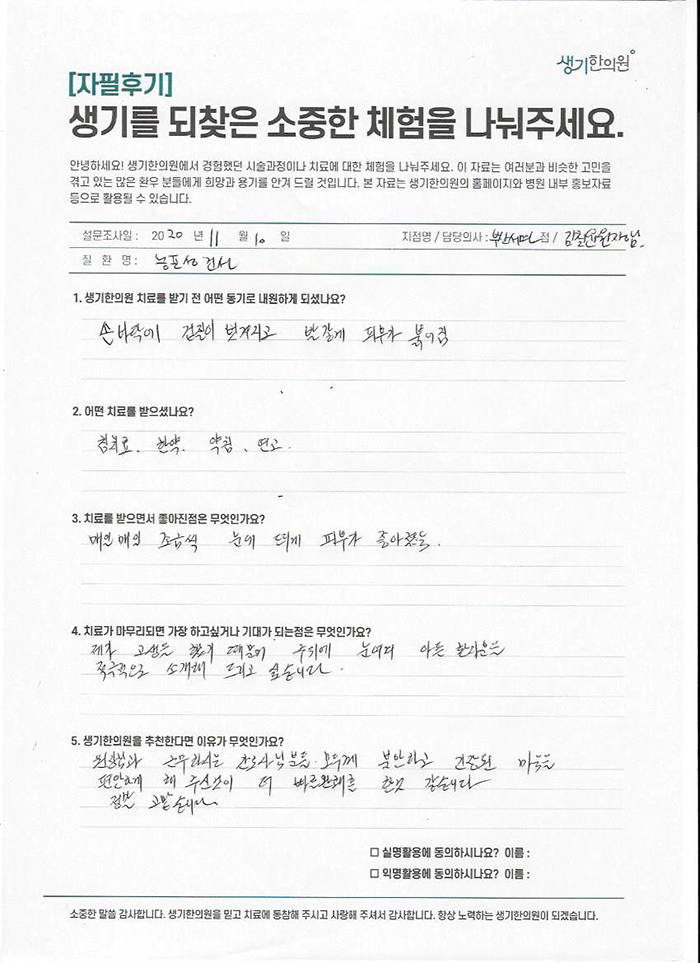 생기한의원
[자필후기]
생기를 되찾은 소중한 체험을 나눠주세요.
안녕하세요! 생기한의원에서 경험했던 시술과정이나 치료에 대한 체험을 나눠주세요. 이 자료는 여러분과 비슷한 고민을
겪고 있는 많은 환우 분들에게 희망과 용기를 안겨 드릴 것입니다. 본 자료는 생기한의원의 홈페이지와 병원 내부 홍보자료
등으로 활용될 수 있습니다.
설문조사일 : 2020 년 11 월 10 일 지점명 / 담당의사 : 부산서면 점 / 원장님
질 환 명 : 농포성건선
1. 생기한의원 치료를 받기 전 어떤 동기로 내원하게 되셨나요?
손바닥에 껍질이 벗겨지고 빨갛게 피부가 붉어짐
2. 어떤 치료를 받으셨나요?
침치료, 한약, 약침, 연고.
3. 치료를 받으면서 좋아진점은 무엇인가요?
매일매일 조금씩 눈에 띄게 피부가 좋아졌음.
4. 치료가 마무리되면 가장 하고싶거나 기대가 되는점은 무엇인가요?
제가 고생을 했기 때문에 주위에 아픈 환자분들
적극적으로 소개해 드리고 싶습니다.
5. 생기한의원을 추천한다면 이유가 무엇인가요?
원장님과 근무하시는 간호사님분들 모두께 불안하고 긴장된 마음을
편안하게 해 주신것이 더 빠른완쾌를 한것 같습니다
정말 고맙습니다.
□ 실명활용에 동의하시나요? 이름 :
□ 익명활용에 동의하시나요? 이름 :
소중한 말씀 감사합니다. 생기한의원을 믿고 치료에 동참해 주시고 사랑해 주셔서 감사합니다. 항상 노력하는 생기한의원이 되겠습니다.